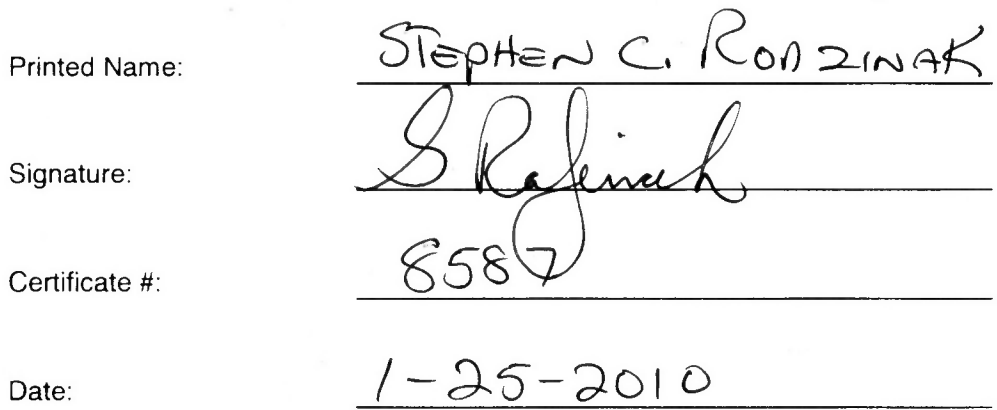 Printed Name: STEPHEN C. RODZINAK
Signature: S Rodzinak
Certificate #: 8587
Date: 1-25-2010